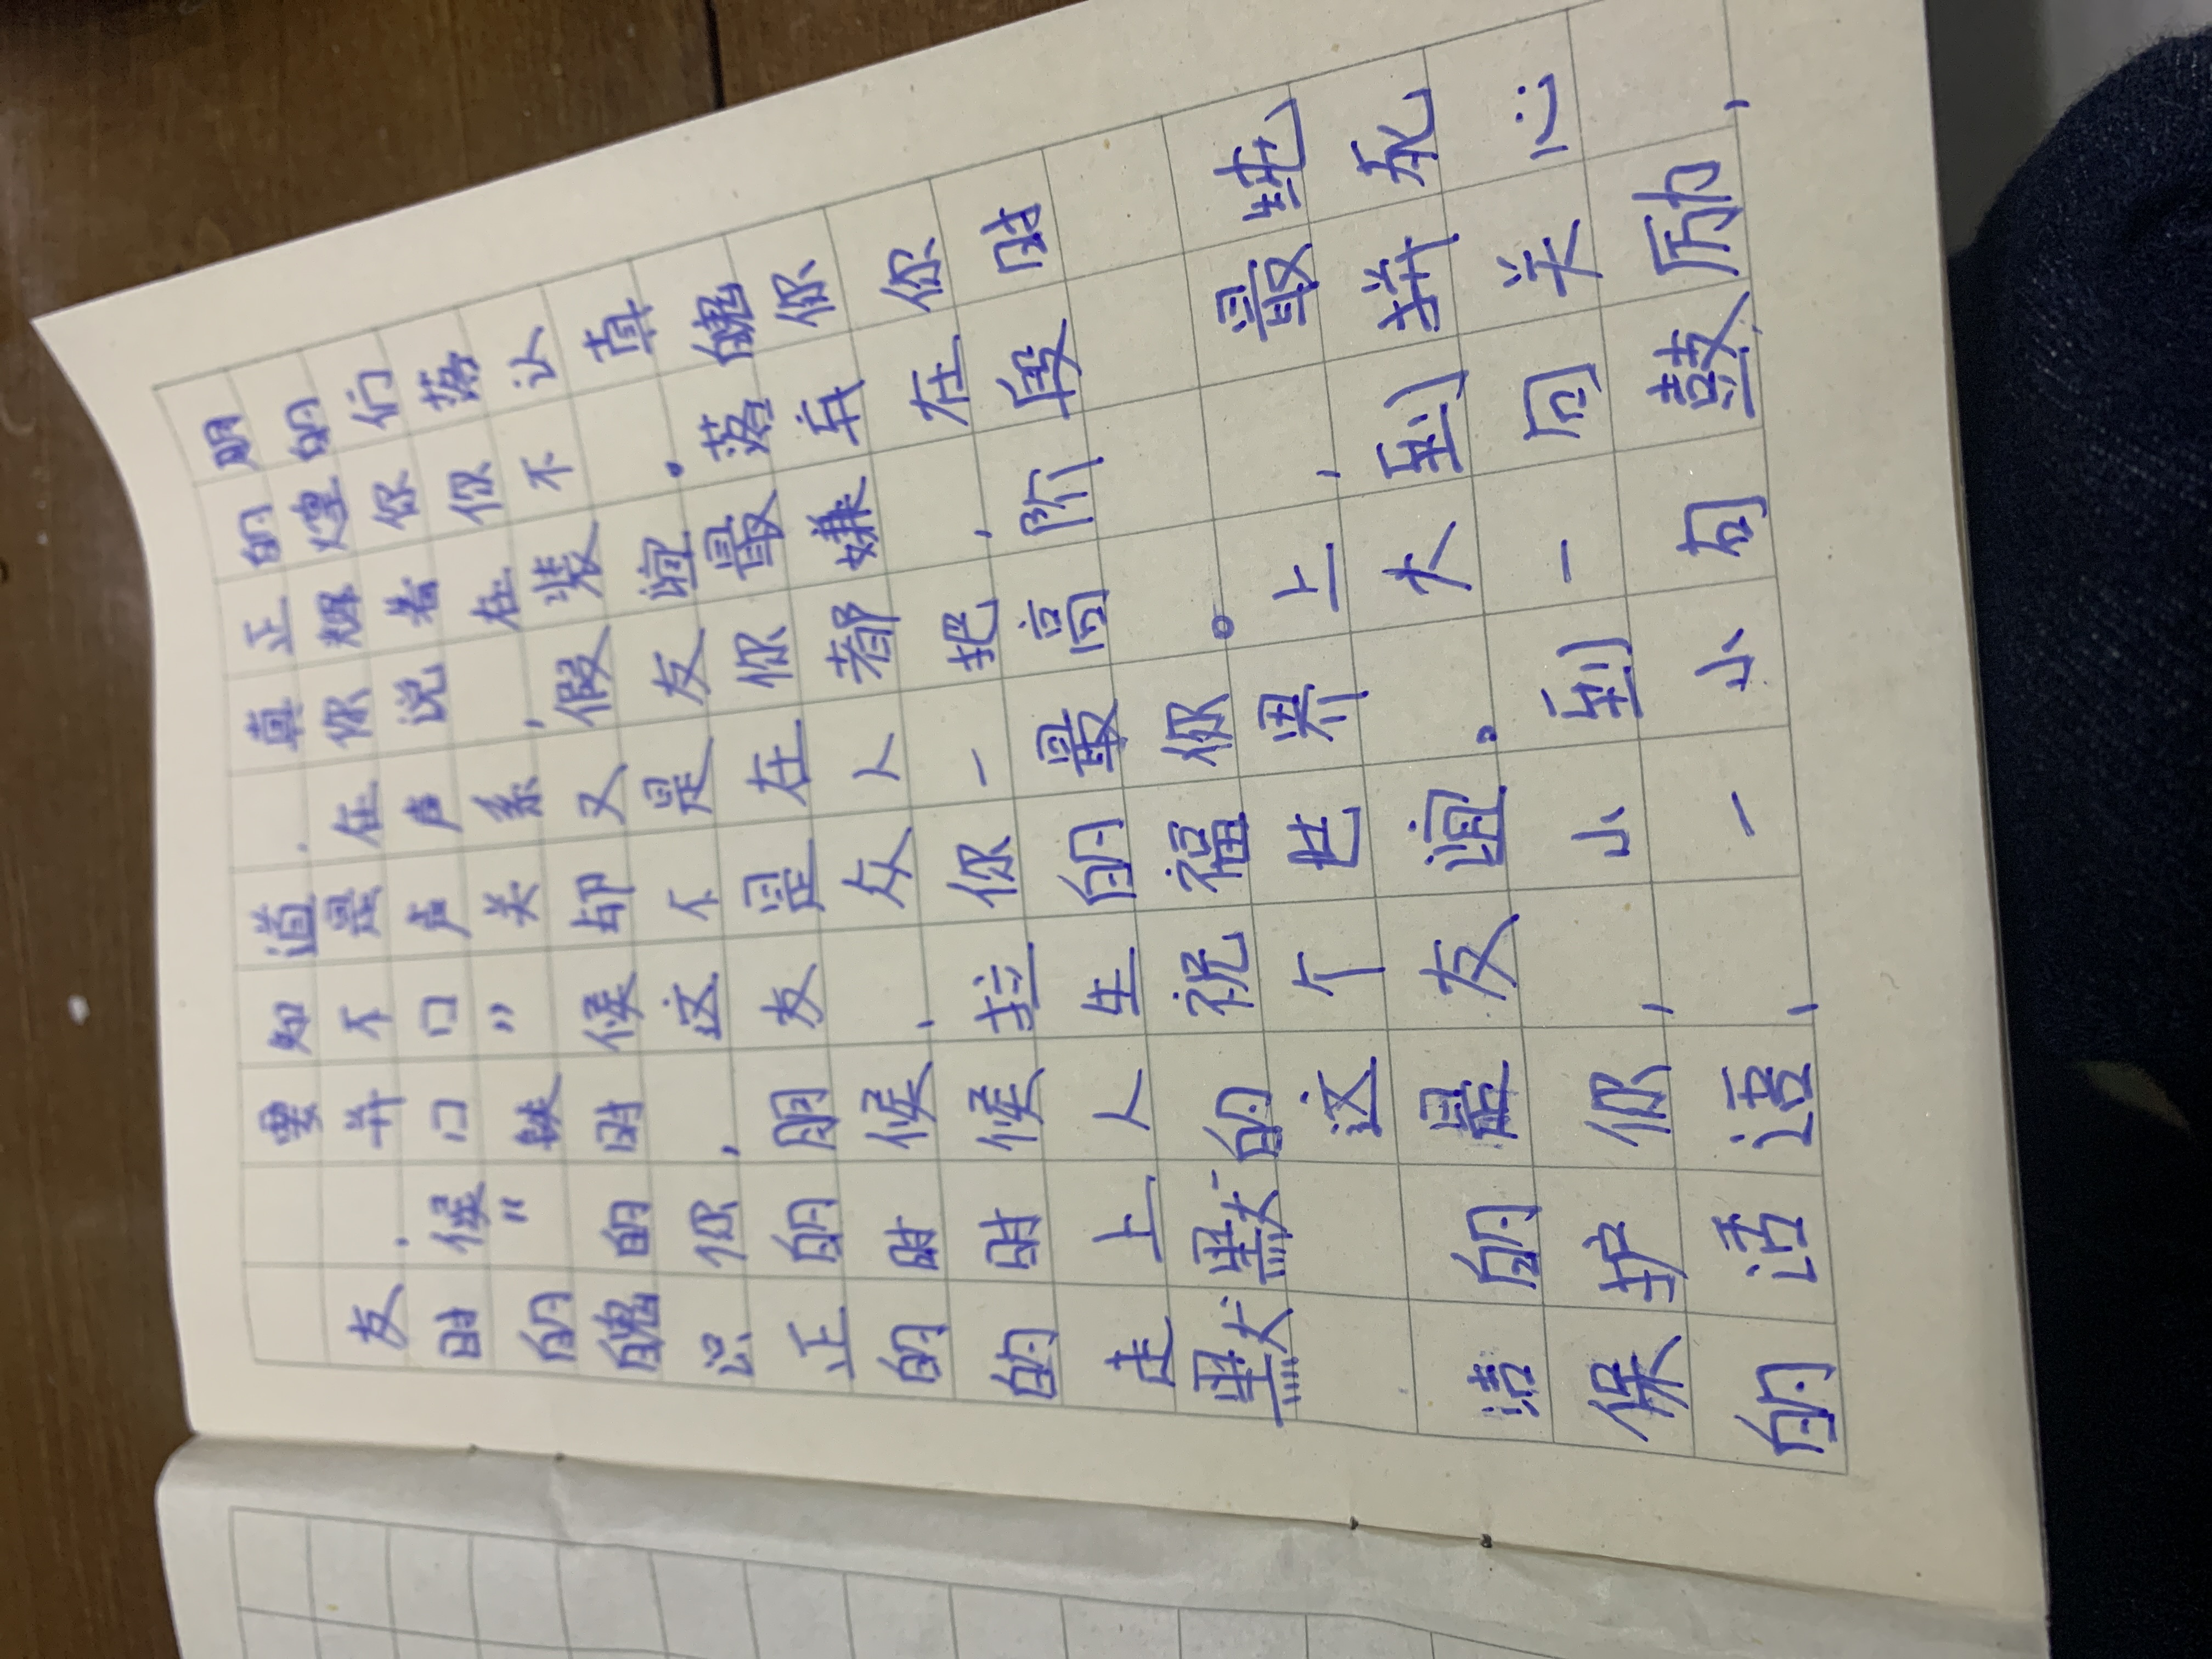 要知道,真正的朋
友,并不是在你辉煌的
时候口口声声说着你们
的"铁"关系,在你落
魄的时候却又假装不认
识你,这不是友谊。真
正的朋友是在你最落魄
的时候,众人都嫌弃你
的时候拉你一把,在你
走上人生的最高阶段时
默默的祝福你。
这个世界上,最纯
洁的是友谊。大到拼死
保护你,小到一句关心
的话语,一小句鼓励,